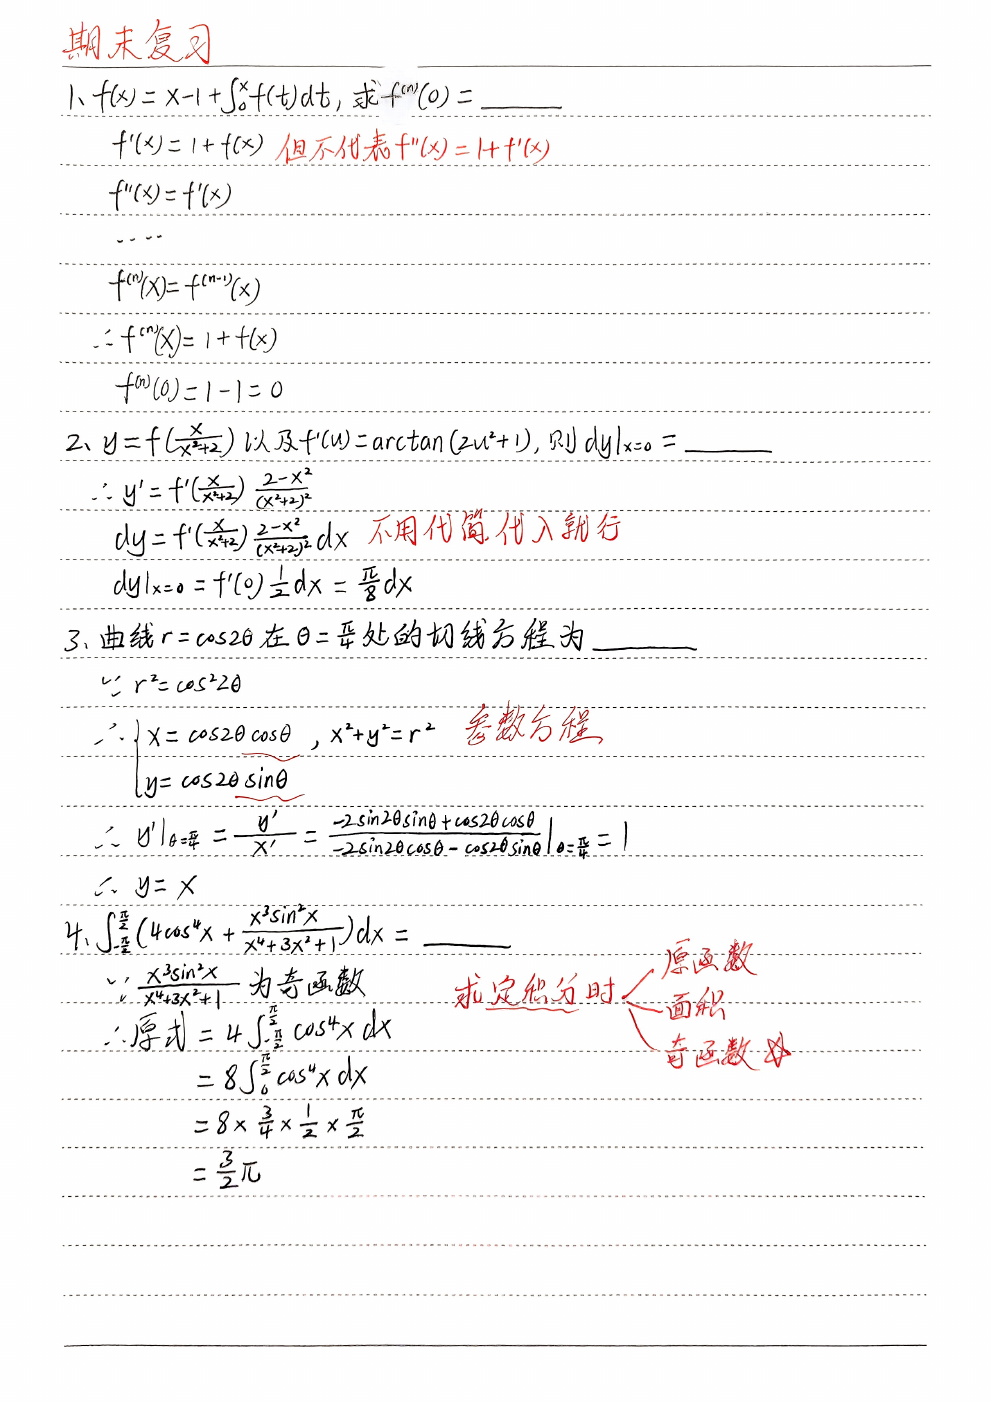 期末复习
1、f(x) = x-1+∫₀ˣf(t)dt, 求f⁽ⁿ⁾(0) = ______
f'(x) = 1 + f(x) 但不代表f''(x) = 1+f'(x)
f''(x) = f'(x)
....
f⁽ⁿ⁾(x) = f⁽ⁿ⁻¹⁾(x)
∴ f⁽ⁿ⁾(x) = 1 + f(x)
f⁽ⁿ⁾(0) = 1 - 1 = 0
2、y = f(x/(x²+2)) 以及f'(u) = arctan(2u²+1), 则dy|x=0 = ______
∴ y' = f'(x/(x²+2)) (2-x²)/(x²+2)²
dy = f'(x/(x²+2)) (2-x²)/(x²+2)² dx 不用化简代入就行
dy|x=0 = f'(0) 1/2 dx = π/8 dx
3、曲线r = cos2θ 在 θ = π/4 处的切线方程为______
∵ r² = cos²2θ
∴ { x = cos2θ cosθ , x²+y² = r² 参数方程
y = cos2θ sinθ
∴ y'|θ=π/4 = y'/x' = (-2sin2θsinθ + cos2θcosθ)/(-2sin2θcosθ - cos2θsinθ)|θ=π/4 = 1
∴ y = x
4、∫_{-π/2}^{π/2} (4cos⁴x + x³sin²x/(x⁴+3x²+1))dx = ______
∵ x³sin²x/(x⁴+3x²+1) 为奇函数
求定积分时
原函数
面积
奇函数 ☆
∴原式 = 4∫_{-π/2}^{π/2} cos⁴x dx
= 8∫₀^{π/2} cos⁴x dx
= 8 × 3/4 × 1/2 × π/2
= 3/2 π